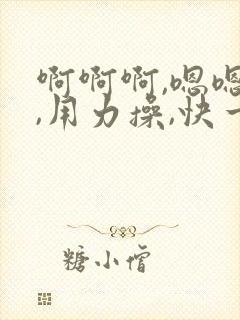 啊啊啊,嗯嗯
,用力操,快一
糖小僧